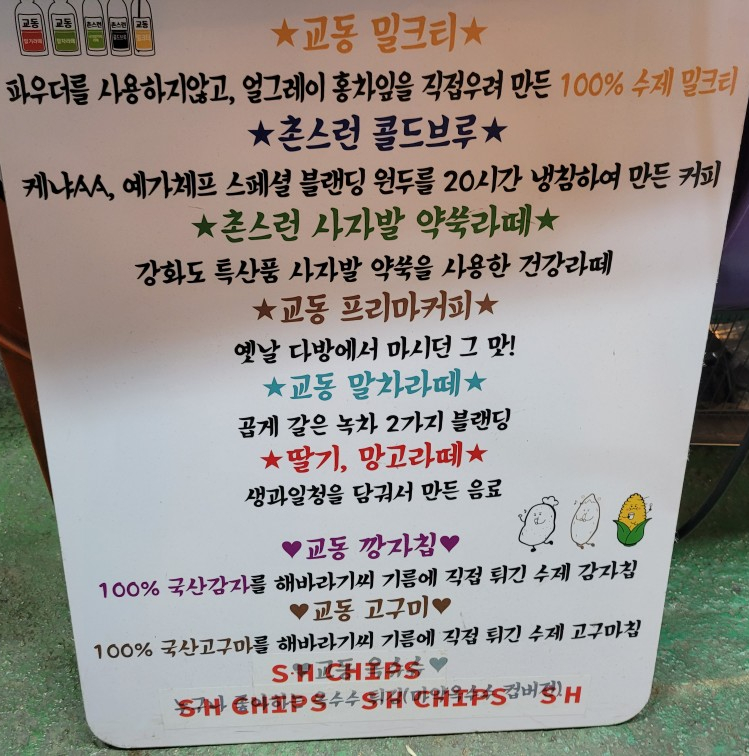 교동 교동 촌스런 촌스런 교동
★교동 밀크티★
파우더를 사용하지않고, 얼그레이 홍차잎을 직접우려 만든 100% 수제 밀크티
★촌스런 콜드브루★
케냐AA, 예가체프 스페셜 블랜딩 원두를 20시간 냉침하여 만든 커피
★촌스런 사자발 약쑥라떼★
강화도 특산품 사자발 약쑥을 사용한 건강라떼
★교동 프리마커피★
옛날 다방에서 마시던 그 맛!
★교동 말차라떼★
곱게 갈은 녹차 2가지 블랜딩
★딸기, 망고라떼★
생과일청을 담궈서 만든 음료
♥교동 깡자칩♥
100% 국산감자를 해바라기씨 기름에 직접 튀긴 수제 감자칩
♥교동 고구미♥
100% 국산고구마를 해바라기씨 기름에 직접 튀긴 수제 고구마칩
♥교동 옥수수♥
S·H CHIPS
S·H CHIPS S·H CHIPS S·H